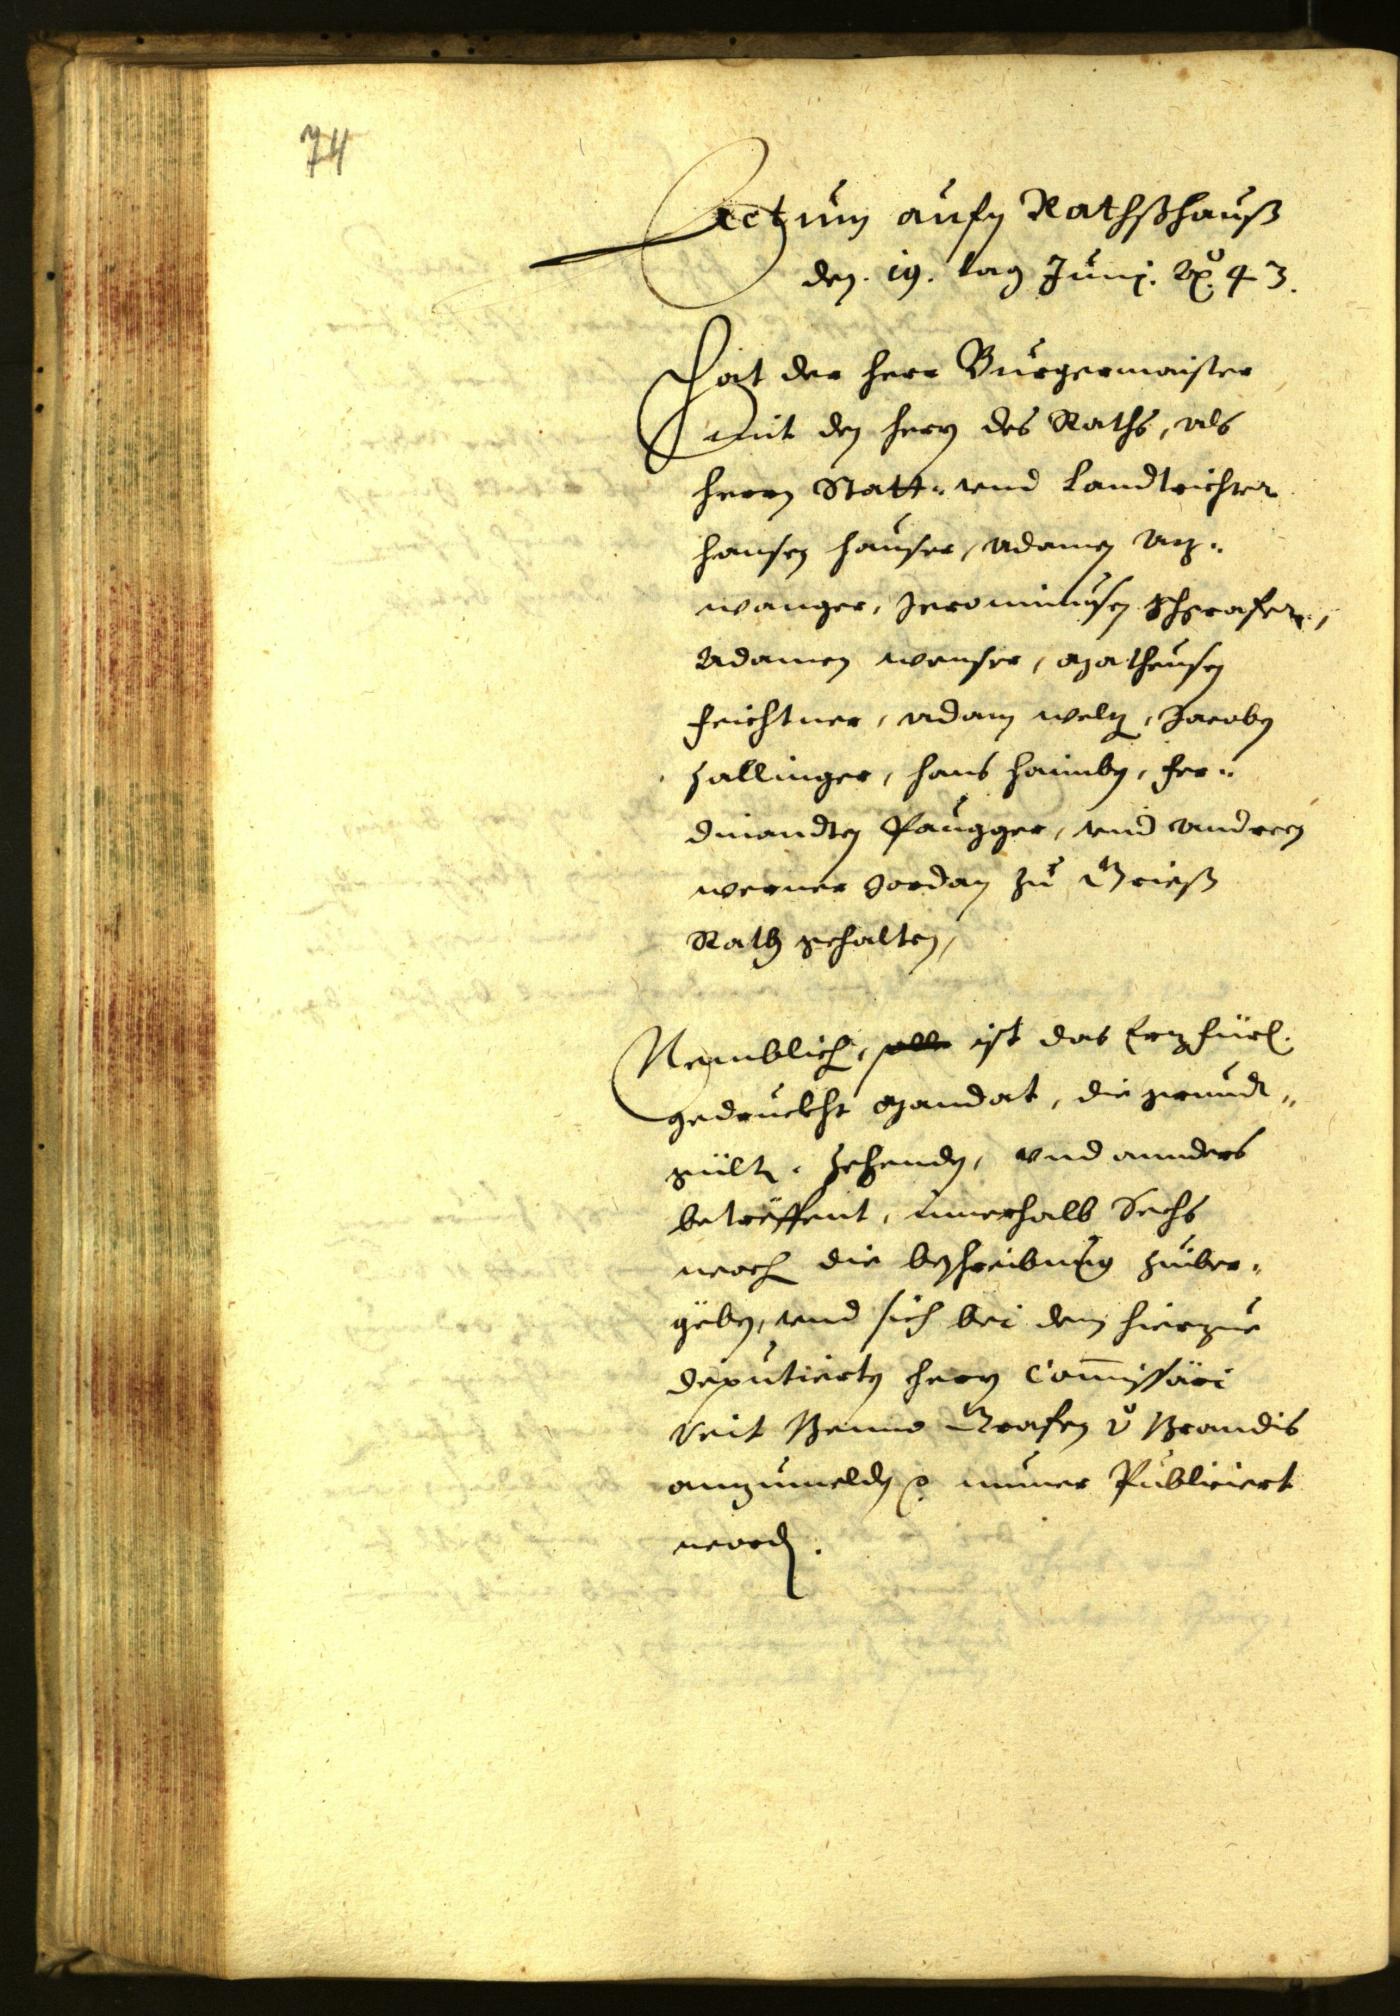 74
Actum aufn Rathßhauß
den. 19. tag Junj. Aº. 43.
Hat der herr Burgermaister
mit den herrn des Raths, als
herrn Statt- vnd Landtrichter
Hansen Hauser, Adamen Az-
wanger, Jeronimusen Schrafer,
Adamen Wenser, Matheusen
Feichtner, Adam Weltz, Jacoben
Zallinger, Hans Haimbn, Fer-
dinandten Paugger, vnd Andreen
Werner Jordan zu Grieß
Rath gehalten,
Nemblich, ist das Erzfürl.
gedruckht Mandat, die grundt-
gült, Zehenden, vnd annders
betreffent, innerhalb Sechs
woch die beschreibung zuüber-
geben, vnd sich bei dem hierzue
deputierten herrn Commissäri
Veit Benno Grafen v Brandis
anzumelden numer Publiciert
word.